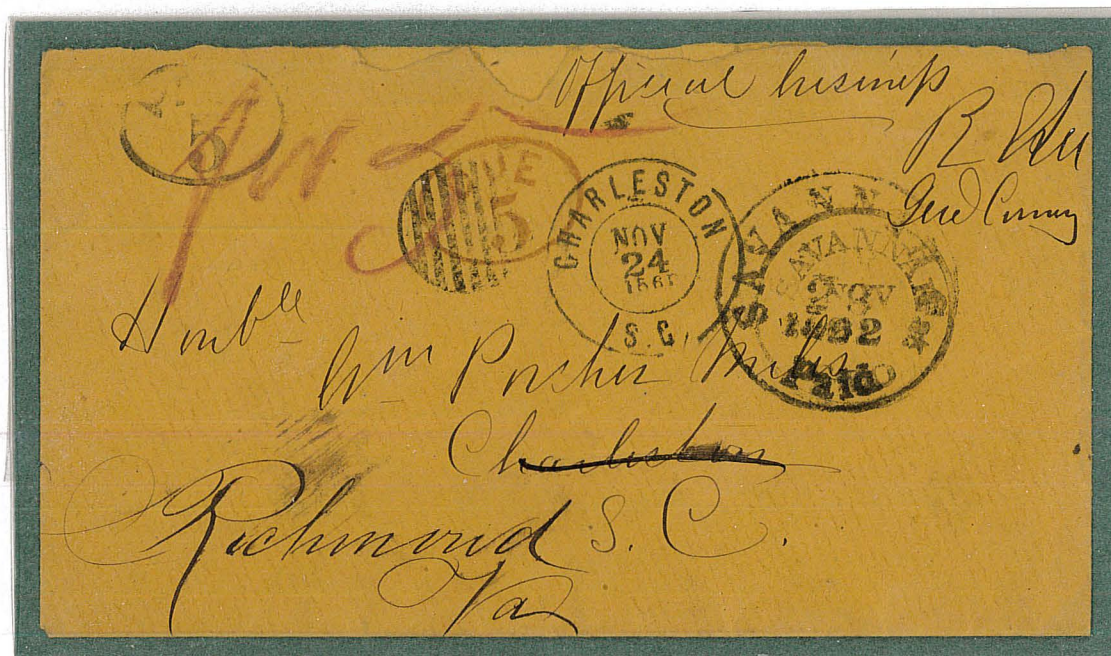 Official business
R E Lee
Genl Comng
5
DUE
5
CHARLESTON
NOV
24
1861
S.C.
SAVANNAH
SAVANNAH
NOV
1862
Paid
Honble
Wm Porcher Miles
Charleston
S. C.
Richmond
Va